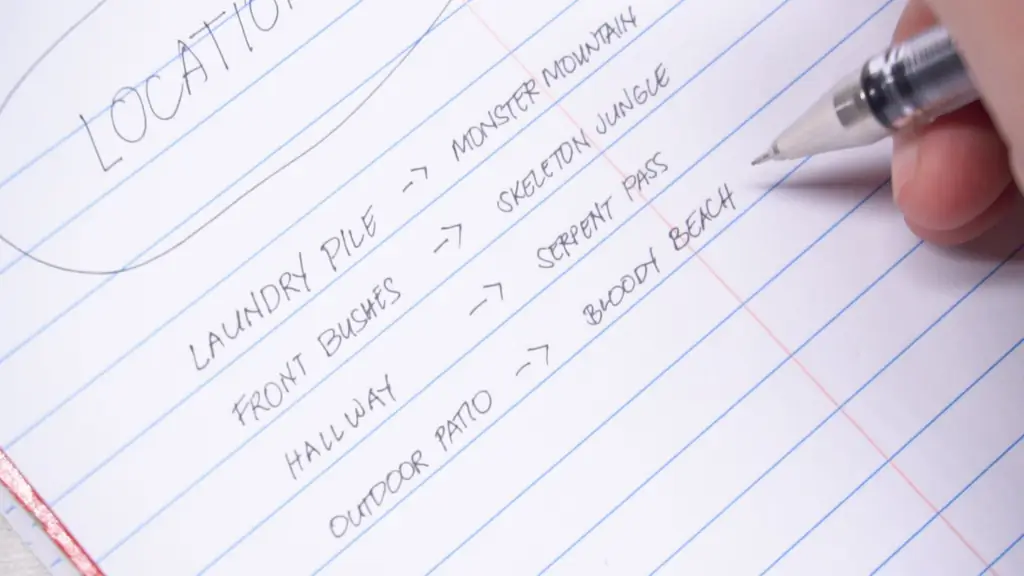 LOCATIO
LAUNDRY PILE -> MONSTER MOUNTAIN
FRONT BUSHES -> SKELETON JUNGLE
HALLWAY -> SERPENT PASS
OUTDOOR PATIO -> BLOODY BEACH